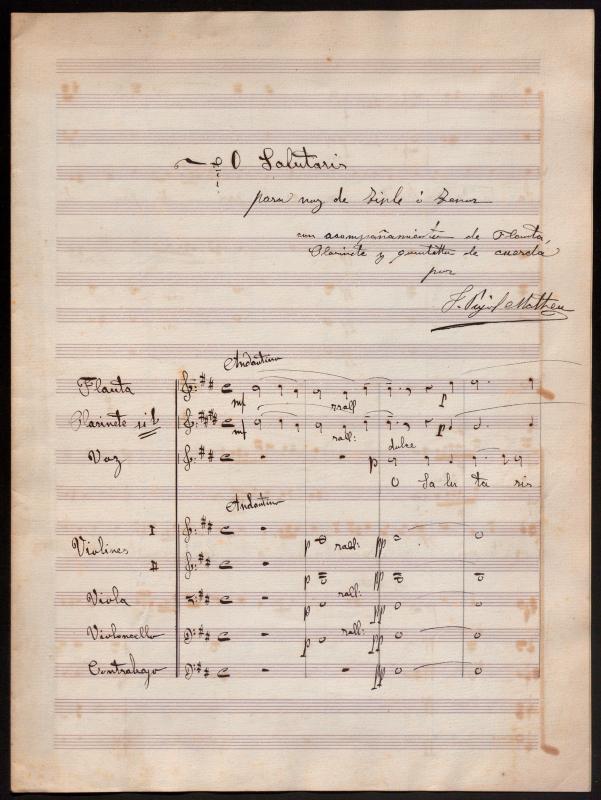 O Salutaris
para voz de Tiple ó Tenor
con acompañamiento de Flauta,
Clarinete y quintetto de cuerda
por
J. Pujol Matheu
Andantino
Flauta
mf rrall p
Clarinete si b
mf rall: p
dulce
Voz
p
O Sa lu ta ris
Andantino
I
Violines
p rall: pp
II
p pp
rall:
Viola
p pp
rall:
Violoncello
p pp
Contrabajo
pp